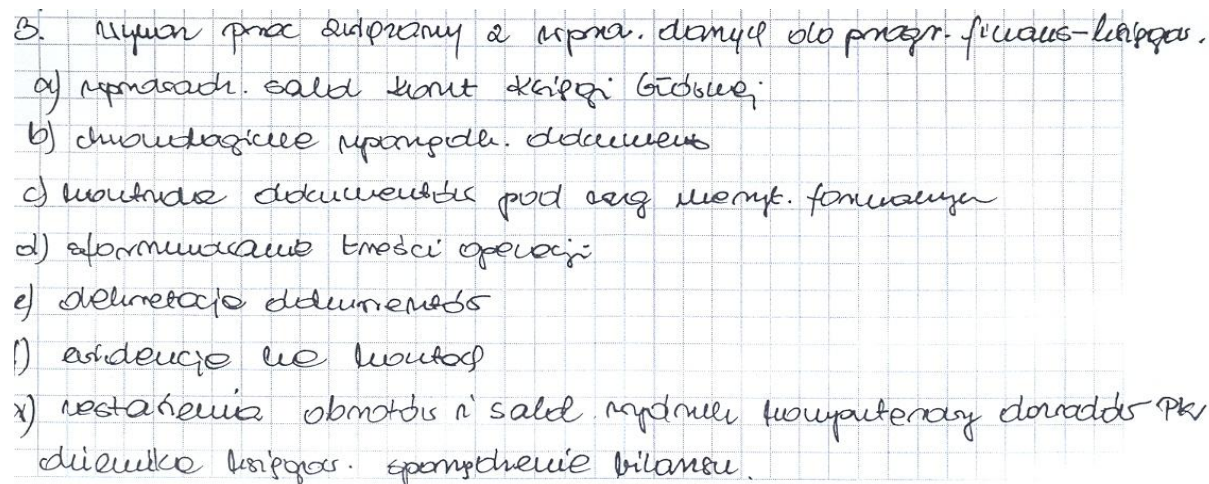 3. Wykaz prac związany z wpro. danych do progr. finans-księgow.
a) wprowadz. sald kont księgi Głównej
b) chronologiczne uporządk. dokument
c) kontrola dokumentów pod wzg meryt. formalnym
d) sformułowanie treści operacji
e) dekretacja dokumentów
f) ewidencja na kontach
x) zestawienia obrotów i sald wydruk komputerowy dowodów PK
dziennika księgow. sporządzenie bilansu.